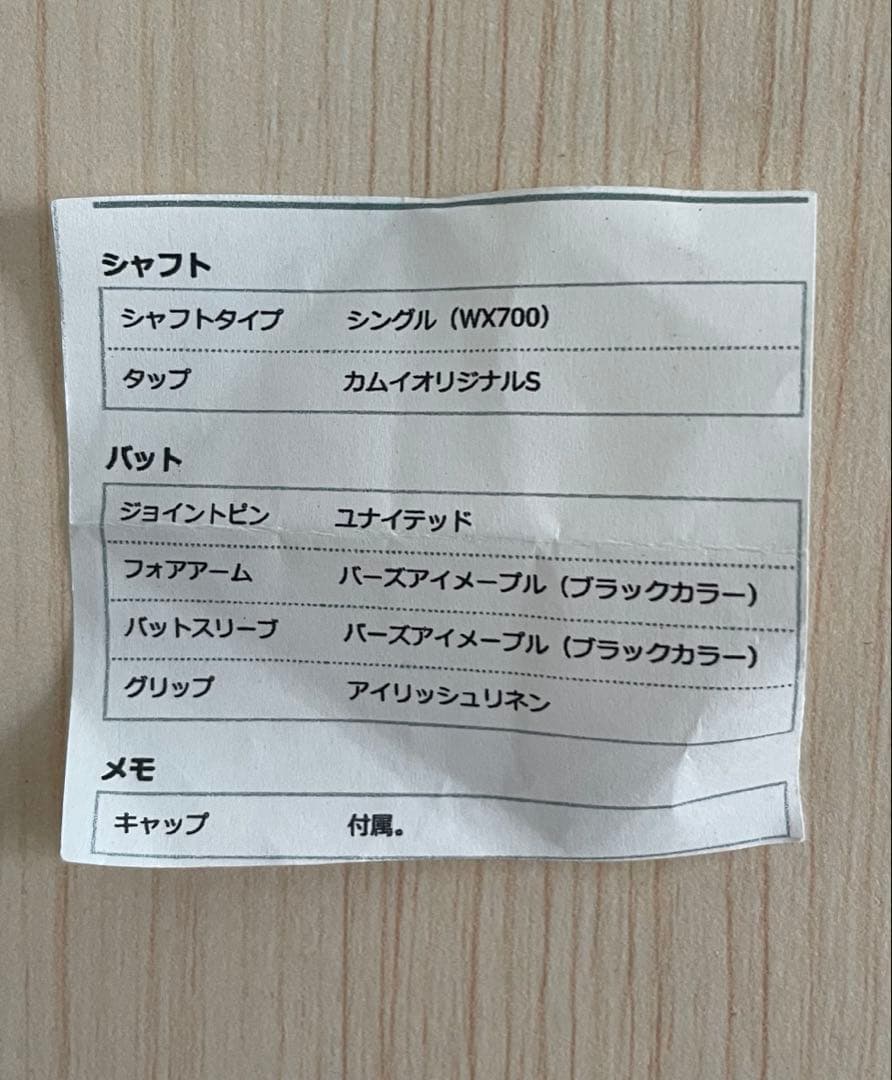 シャフト
シャフトタイプ シングル（WX700）
タップ カムイオリジナルS
バット
ジョイントピン ユナイテッド
フォアアーム バーズアイメープル（ブラックカラー）
バットスリーブ バーズアイメープル（ブラックカラー）
グリップ アイリッシュリネン
メモ
キャップ 付属。